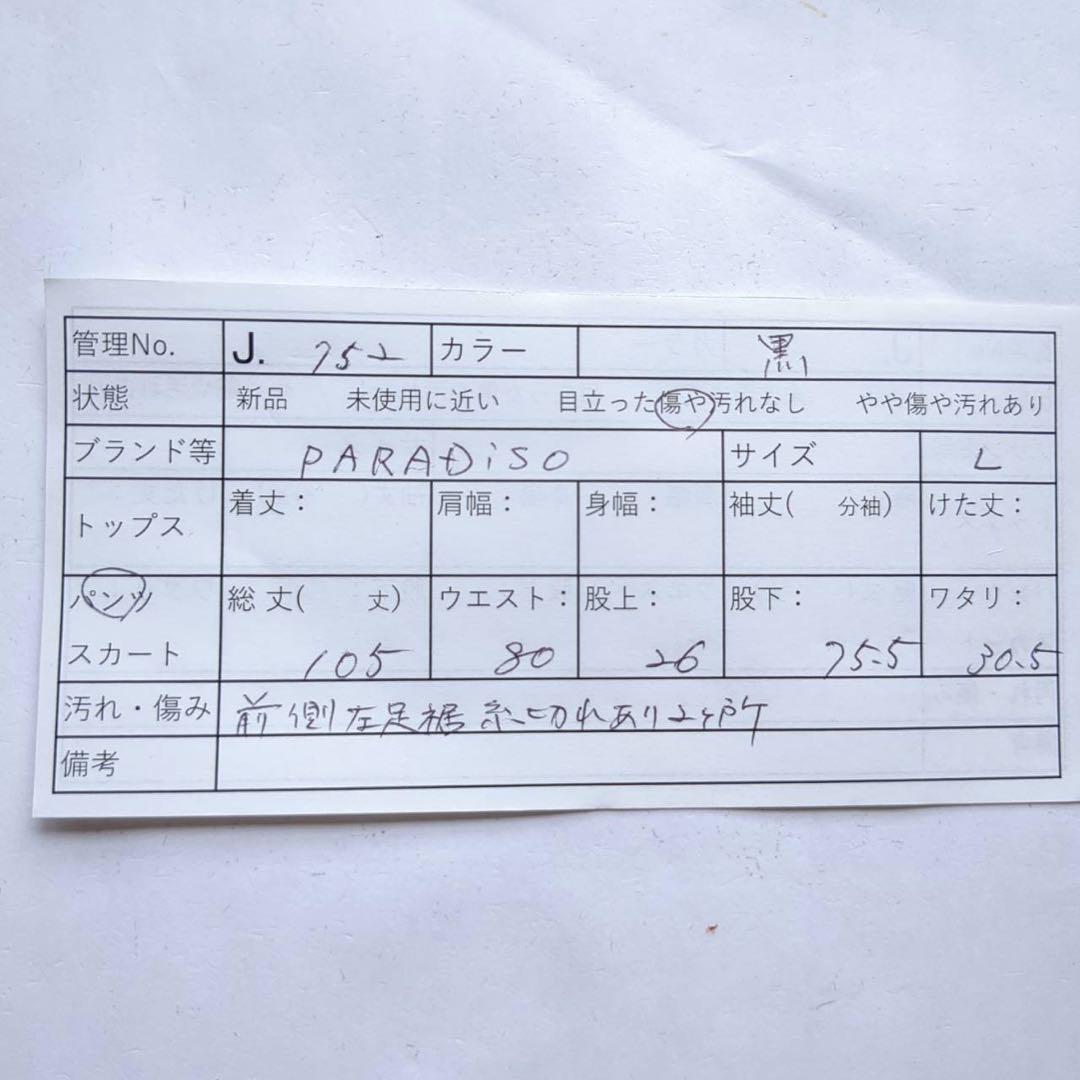 管理No. J. 752 カラー 黒
状態 新品 未使用に近い 目立った傷や汚れなし やや傷や汚れあり
ブランド等 PARADiSO サイズ L
トップス 着丈： 肩幅： 身幅： 袖丈( 分袖) けた丈：
パンツ 総丈( 丈) ウエスト： 股上： 股下： ワタリ：
スカート 105 80 26 75.5 30.5
汚れ・傷み 前側左足裾糸切れあり2ヶ所
備考